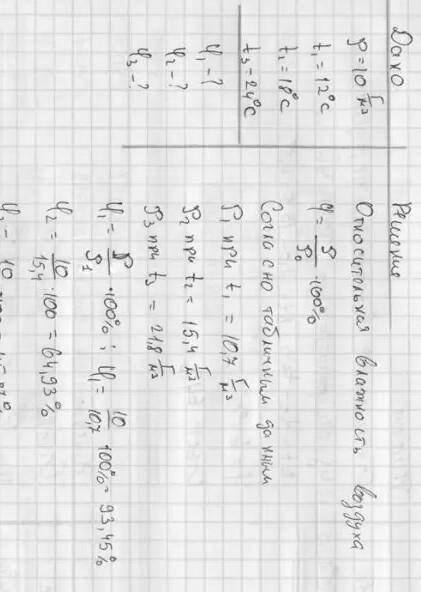 Дано
ρ = 10 г/м³
t₁ = 12°C
t₁ = 18°C
t₃ - 24°C
φ₁ - ?
φ₂ - ?
φ₃ - ?
Решение
Относительная влажность воздуха
φ = ρ/ρ₀ · 100%
Согласно табличным данным
ρ₁ при t₁ = 10,7 г/м³
ρ₂ при t₂ = 15,4 г/м³
ρ₃ при t₃ = 21,8 г/м³
φ₁ = ρ/ρ₁ · 100% ; φ₁ = 10/10,7 · 100% = 93,45%
φ₂ = 10/15,4 · 100 = 64,93%